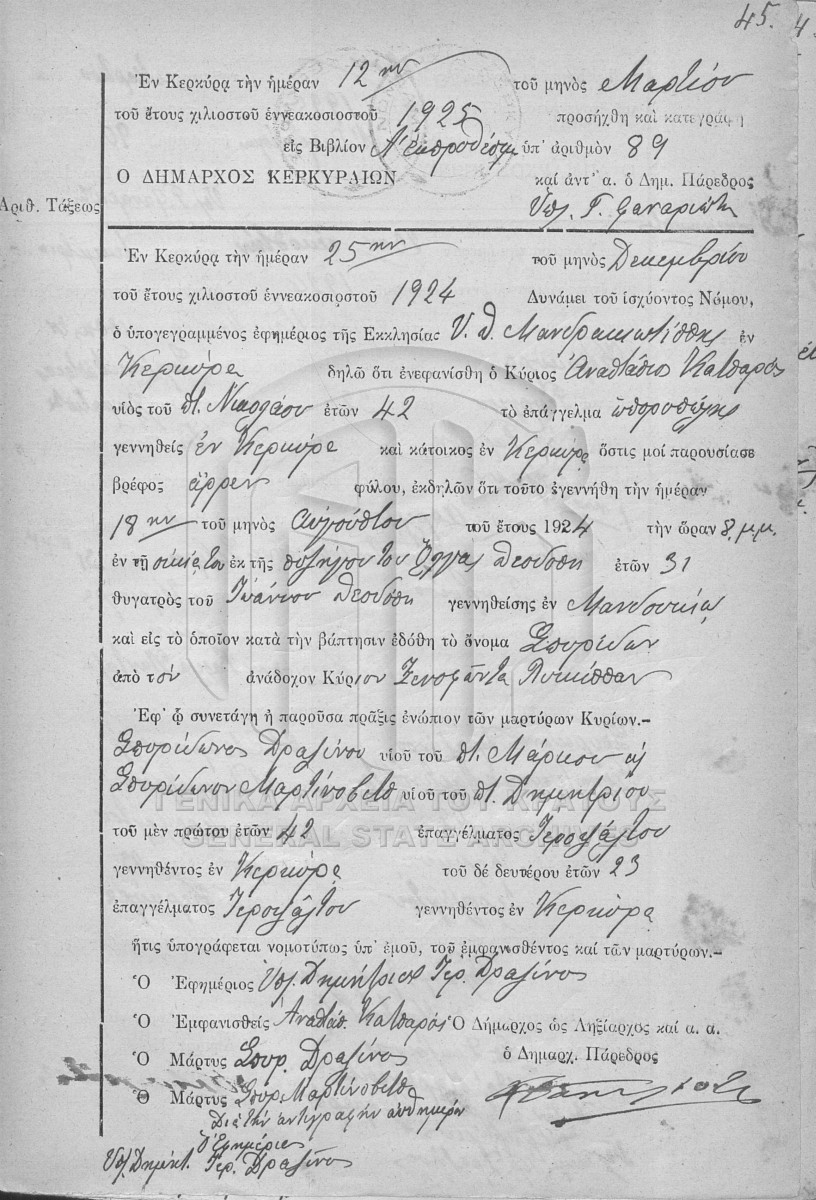 45.
Ἐν Κερκύρᾳ τὴν ἡμέραν 12ην τοῦ μηνὸς Μαρτίου
τοῦ ἔτους χιλιοστοῦ ἐννεακοσιοστοῦ 1925 προσήχθη καὶ κατεγράφη
εἰς Βιβλίον Λ' ἐκπροθέσμ ὑπ' ἀριθμὸν 89
Ο ΔΗΜΑΡΧΟΣ ΚΕΡΚΥΡΑΙΩΝ καὶ ἀντ' α. ὁ Δημ. Πάρεδρος
Ἀριθ. Τάξεως
Υπ. Γ. Φαναριώτη
Ἐν Κερκύρᾳ τὴν ἡμέραν 25ην τοῦ μηνὸς Δεκεμβρίου
τοῦ ἔτους χιλιοστοῦ ἐννεακοσιοστοῦ 1924 Δυνάμει τοῦ ἰσχύοντος Νόμου,
ὁ ὑπογεγραμμένος ἐφημέριος τῆς Ἐκκλησίας Υ. Θ. Μανδρακιωτίσσης ἐν
Κερκύρᾳ δηλῶ ὅτι ἐνεφανίσθη ὁ Κύριος Ἀναστάσιος Κατσαρός
υἱὸς τοῦ πτ. Νικολάου ἐτῶν 42 τὸ ἐπάγγελμα ὀπωροπώλης
γεννηθεὶς ἐν Κερκύρᾳ καὶ κάτοικος ἐν Κερκύρᾳ ὅστις μοὶ παρουσίασε
βρέφος ἄρρεν φύλου, ἐκδηλῶν ὅτι τοῦτο ἐγεννήθη τὴν ἡμέραν
18ην τοῦ μηνὸς Αὐγούστου τοῦ ἔτους 1924 τὴν ὥραν 8. μ.μ.
ἐν τῇ οἰκίᾳ του ἐκ τῆς συζύγου του Ὄλγας Θεοδόση ἐτῶν 31
θυγατρὸς τοῦ Ἰωάννου Θεοδόση γεννηθείσης ἐν Μανδουκίῳ
καὶ εἰς τὸ ὁποῖον κατὰ τὴν βάπτισιν ἐδόθη τὸ ὄνομα Σπυρίδων
ἀπὸ τὸν ἀνάδοχον Κύριον Ξενοφῶντα Λυκίσσαν
Ἐφ' ᾧ συνετάγη ἡ παροῦσα πρᾶξις ἐνώπιον τῶν μαρτύρων Κυρίων.–
Σπυρίδωνος Δραζίνου υἱοῦ τοῦ πτ. Μάρκου κ
Σπυρίδωνος Μαρτίνοβιτς υἱοῦ τοῦ πτ. Δημητρίου
ΓΕΝΙΚΑ ΑΡΧΕΙΑ ΤΟΥ ΚΡΑΤΟΥΣ
τοῦ μὲν πρώτου ἐτῶν 42 ἐπαγγέλματος Ἱεροψάλτου
GENERAL STATE ARCHIVES
γεννηθέντος ἐν Κερκύρᾳ τοῦ δὲ δευτέρου ἐτῶν 23
ἐπαγγέλματος Ἱεροψάλτου γεννηθέντος ἐν Κερκύρᾳ
ἥτις ὑπογράφεται νομοτύπως ὑπ' ἐμοῦ, τοῦ ἐμφανισθέντος καὶ τῶν μαρτύρων.–
Ὁ Ἐφημέριος Υπ. Δημήτριος Ἱερ. Δραζίνος
Ὁ Ἐμφανισθεὶς Ἀναστάσ. Κατσαρός Ὁ Δήμαρχος ὡς Ληξίαρχος καὶ α. α.
Ὁ Μάρτυς Σπυρ. Δραζίνος ὁ Δημαρχ. Πάρεδρος
Ὁ Μάρτυς Σπυρ. Μαρτίνοβιτς
Διὰ τὴν ἀντιγραφὴν αὐθημερόν
Ὁ Ἐφημέριος
Υπ. Δημήτ. Ἱερ. Δραζίνος